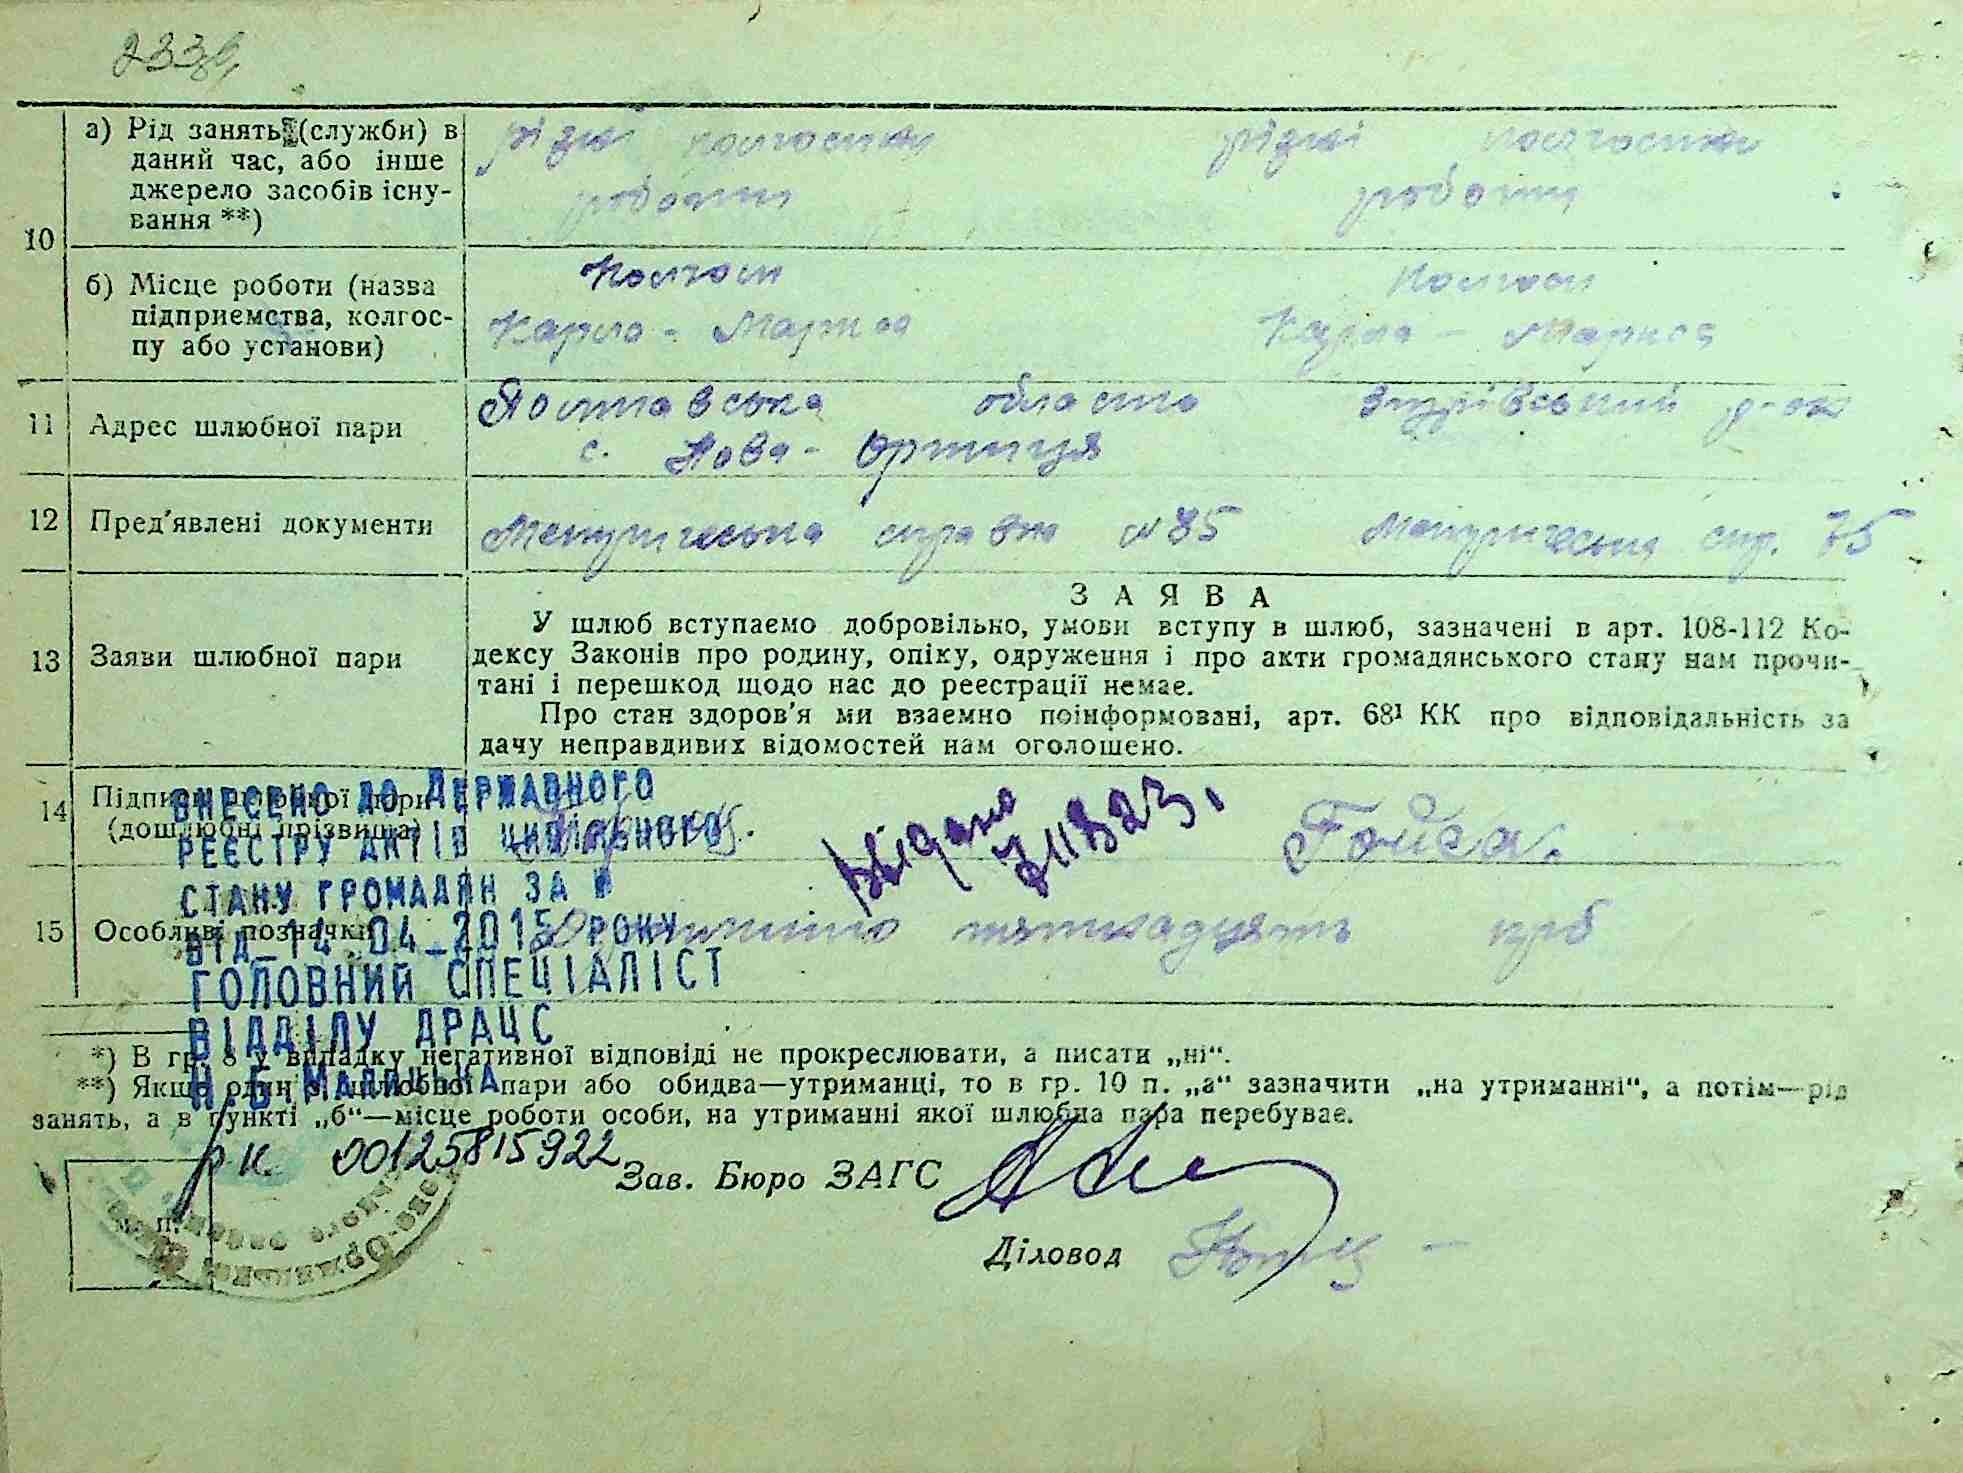 233
10 а) Рід занять (службы) в даний час, або інше джерело засобів існування **)
різні колгоспни роботи
різні колгоспни роботи
б) Місце роботи (назва підприємства, колгоспу або установи)
Колгосп Карла-Маркса
Колгосп Карла-Маркса
11 Адрес шлюбної пари
Полтавська область р-он
с. Нова-Оржиця
12 Пред'явлені документи
справка №85 спр. 75
13 Заяви шлюбної пари
ЗАЯВА
У шлюб вступаємо добровільно, умови вступу в шлюб, зазначені в арт. 108-112 Ко-
дексу Законів про родину, опіку, одруження і про акти громадянського стану нам прочи-
тані і перешкод щодо нас до реєстрації немає.
Про стан здоров'я ми взаємно поінформовані, арт. 68¹ КК про відповідальність за
дачу неправдивих відомостей нам оголошено.
14 Підписи шлюбної пари
(дошлюбні прізвища)
Видано
Гойса.
15 Особливі позначки
пятнадцять крб
ВНЕСЕНО ДО ДЕРЖАВНОГО
РЕЄСТРУ АКТІВ ЦИВІЛЬНОГО
СТАНУ ГРОМАДЯН ЗА №
ВІД 14_04_2015 РОКУ
ГОЛОВНИЙ СПЕЦІАЛІСТ
ВІДДІЛУ ДРАЦС
*) В гр. 8 у випадку негативної відповіді не прокреслювати, а писати „ні“.
**) Якщо один з шлюбної пари або обидва—утриманці, то в гр. 10 п. „а“ зазначити „на утриманні“, а потім—рід
занять, а в пункті „б“—місце роботи особи, на утриманні якої шлюбна пара перебуває.
00125815922
Зав. Бюро ЗАГС
м. п.
Діловод